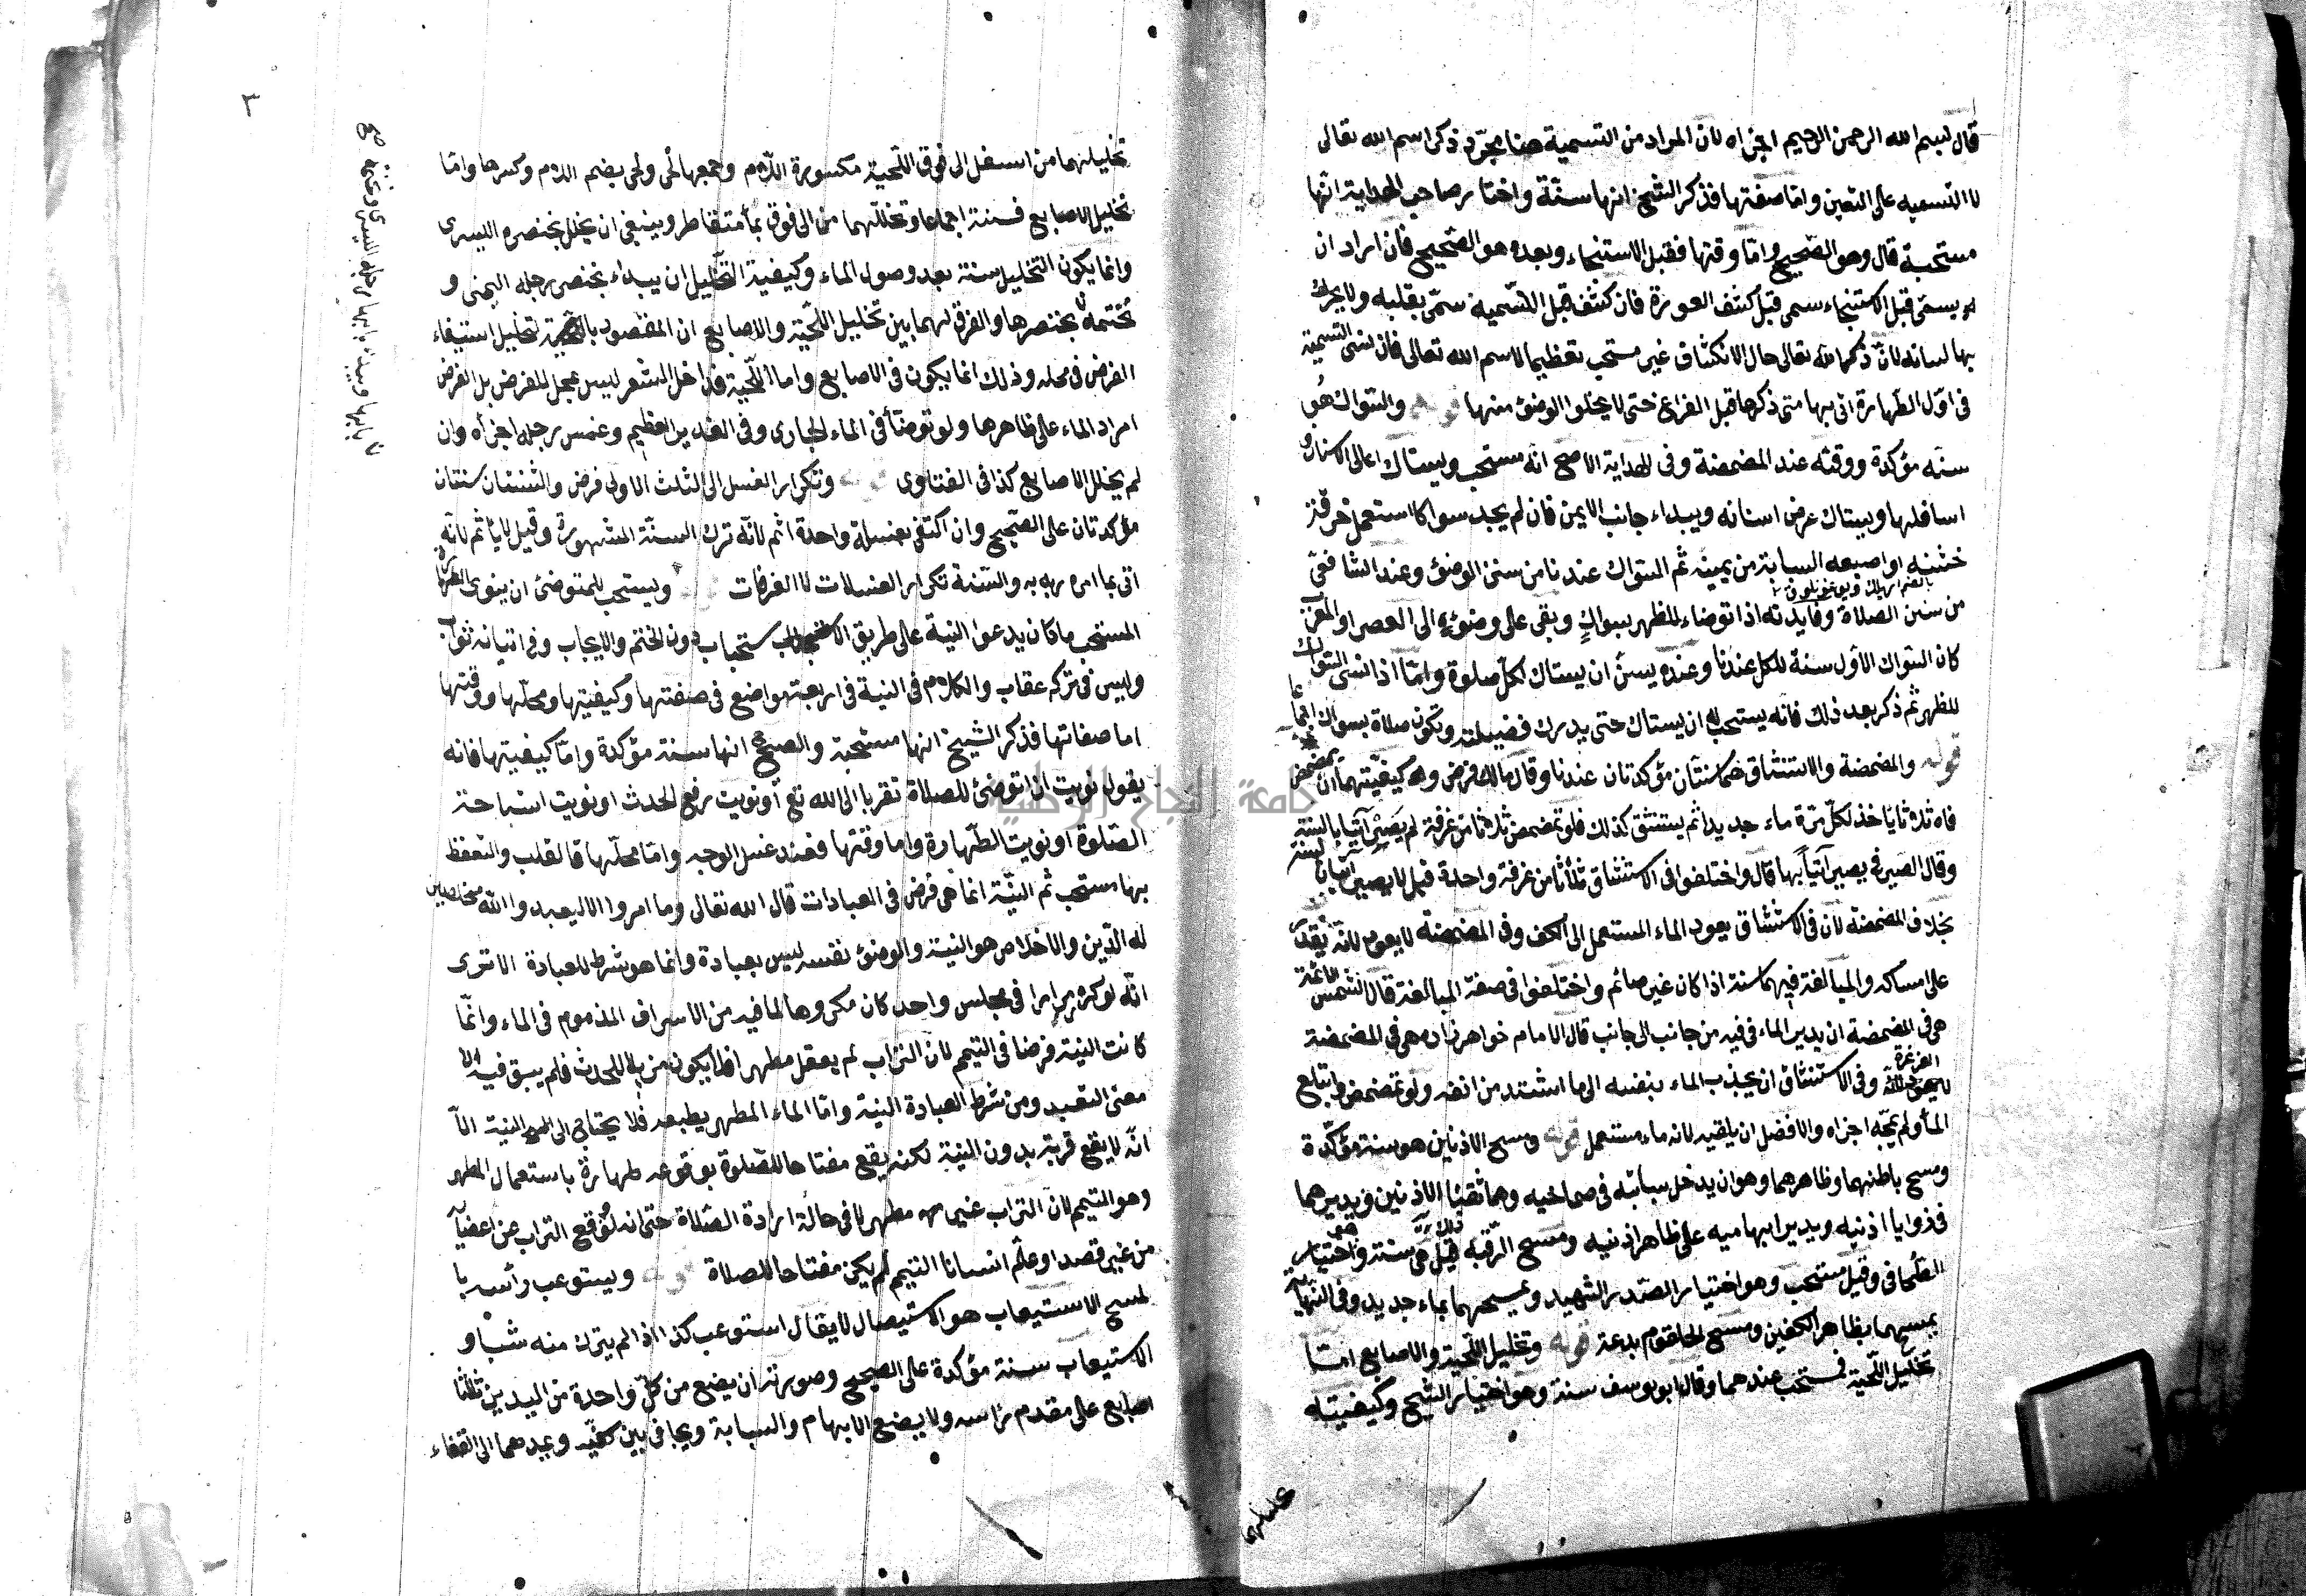 قال بسم الله الرحمن الرحيم اجزاه لان المراد من التسمية هنا مجرد ذكر اسم الله تعالى
لا التسمية على التعين واما صفتها فذكر الشيخ انها سنة واختار صاحب الهداية انها
مستحبة قال وهو الصحيح واما وقتها فقبل الاستنجاء وبعده هو الصحيح فان اراد ان
يسمى قبل الاستنجاء سمى قبل كشف العورة فان كشف قبل التسمية سمى بقلبه ولا يحرك
بها لسانه لان ذكر الله تعالى حال الانكشاف غير مستحب تعظيما لاسم الله تعالى فان نسى التسمية
فى اول الطهارة اتى بها متى ذكرها قبل الفراغ حتى لا يخلوا الوضؤ منها قوله والسواك هو
سنة مؤكدة ووقته عند المضمضة وفى الهداية الاصح انه مستحب ويستاك اعالى الاسنان و
اسافلها ويستاك عرض اسنانه ويبداء جانب الايمن فان لم يجد سواكا استعمل خرقة
خشنه او اصبعه السبابة من يمينه ثم السواك عندنا من سنن الوضؤ وعند الشافعى
من سنن الصلاة وفايدته اذا توضاء للظهر بسواك وبقى على وضوئه الى العصر او المغرب
كان السواك الاول سنة للكل عندنا وعنده يسن ان يستاك لكل صلوة واما اذا نسى السواك
للظهر ثم ذكر بعد ذلك فانه يستحب له ان يستاك حتى يدرك فضيلته وتكون صلاة بسواك اجماعا
قوله والمضمضة والاستنشاق هما سنتان مؤكدتان عندنا وقال مالك فرض وكيفيتهما ان يمضمض
فاه ثلاثا ياخذ لكل مرة ماء جديدا ثم يستنشق كذلك فلو تمضمض ثلاثا من غرفة لم يصر آتيا بالسنة
وقال الصيرفى يصير آتيا بها قال واختلفوا فى الاستنشاق ثلاثا من غرفة واحدة قيل لا يصير آتيا بالسنة
بخلاف المضمضة لان فى الاستنشاق يعود الماء المستعمل الى الكف وفى المضمضة لا يعود لانه يقدر
على امساكه والمبالغة فيهما سنة اذا كان غير صائم واختلفوا فى صفة المبالغة قال الشمس الائمة
هى فى المضمضة ان يدير الماء فى فيه من جانب الى جانب قال الامام خواهر زاده هى فى المضمضة
الغرغرة وفى الاستنشاق ان يجذب الماء بنفسه الى ما اشتد من انفه ولو تمضمض وابتلع
الماء ولم يمجه اجزاه والافضل ان يلقيه لانه ماء مستعمل قوله ومسح الاذنين هو سنة مؤكدة
ومسح باطنهما وظاهرهما وهو ان يدخل سبابتيه فى صماخيه وهما ثقبا الاذنين ويديرهما
فى زوايا اذنيه ويدير ابهاميه على ظاهر اذنيه ومسح الرقبة قيل هى سنة وهو اختيار
الطحاوى وقيل مستحب وهو اختيار الصدر الشهيد ويمسحهما بماء جديد وفى النهاية
يمسحهما بظاهر الكفين ومسح الحلقوم بدعة قوله وتخليل اللحية والاصابع اما
تخليل اللحية فمستحب عندهما وقال ابو يوسف سنة وهو اختيار الشيخ وكيفيته
تخليلهما
٣
تخليلهما من اسفل الى فوق اللحية مكسورة اللام وجمعها لحى ولحى بضم اللام وكسرها واما
تخليل الاصابع فسنة اجماعا وتخللهما من الى فوق بماء متقاطر وينبغى ان يخلل بخنصره اليسرى
وانما يكون التخليل سنة بعد وصول الماء وكيفية التخليل ان يبداء بخنصر رجله اليمنى و
يختمه بخنصرها والفرق لهما بين تخليل اللحية والاصابع ان المقصود بالتخليل استيفاء
الفرض فى محله وذلك انما يكون فى الاصابع واما اللحية فداخل الشعر ليس بمحل للفرض بل الفرض
امرار الماء على ظاهرها ولو توضأ فى الماء الجارى وفى الغدير العظيم وغمس رجله اجزأه وان
لم يخلل الاصابع كذا فى الفتاوى قوله وتكرار الغسل الى الثلث الاولى فرض والثنتان سنتان
مؤكدتان على الصحيح وان اكتفى بغسلة واحدة اثم لانه ترك السنة المشهورة وقيل لا ياثم لانه
اتى بما امره ربه به والسنة تكرار الغسلات لا الغرفات قوله ويستحب للمتوضئ ان ينوى الطهارة
المستحب ما كان يدعوا النية على طريق الاستحباب دون الختم والايجاب وفى اتيانه ثواب
وليس فى تركه عقاب والكلام فى النية فى اربعة مواضع فى صفتها وكيفيتها ومحلها ووقتها
اما صفاتها فذكر الشيخ انها مستحبة والصحيح انها سنة مؤكدة واما كيفيتها فانه
يقول نويت ان اتوضئ للصلاة تقربا الى الله تع أو نويت رفع الحدث او نويت استباحة
الصلوة او نويت الطهارة واما وقتها فعند غسل الوجه واما محلها فالقلب والتلفظ
بها مستحب ثم النية انما هى فرض فى العبادات قال الله تعالى وما امروا الا ليعبدوا الله مخلصين
له الدين والاخلاص هو النية والوضؤ نفسه ليس بعبادة وانما هو شرط للعبادة الا ترى
انه لو كرر مرارا فى مجلس واحد كان مكروها لما فيه من الاسراف المذموم فى الماء وانما
كانت النية فرضا فى التيمم لان التراب لم يعقل مطهرا فلا يكون مزيلا للحدث فلم يبق فيه الا
معنى التعبد ومن شرط العبادة النية واما الماء المطهر بطبعه فلا يحتاج الى النية الا
انه لا يقع قربة بدون النية لكنه يقع مفتاحا للصلوة بوقوعه طهارة باستعمال المطهر
وهو التيمم لان التراب غير مطهر الا فى حالة ارادة الصلاة حتى انه لو وقع التراب عن اعضاء
من غير قصد او علم انسانا التيمم لم يكن مفتاحا للصلاة قوله ويستوعب رأسه با
لمسح الاستيعاب هو الاستيصال لا يقال استوعب كذا اذا لم يترك منه شياء و
الاستيعاب سنة مؤكدة على الصحيح وصورته ان يضع من كل واحدة من اليدين ثلثا
اصابع على مقدم راسه ولا يضع الابهام والسبابة ويجافى بين كفيه ويمدهما الى القفاء
جامعة النجاح الوطنية